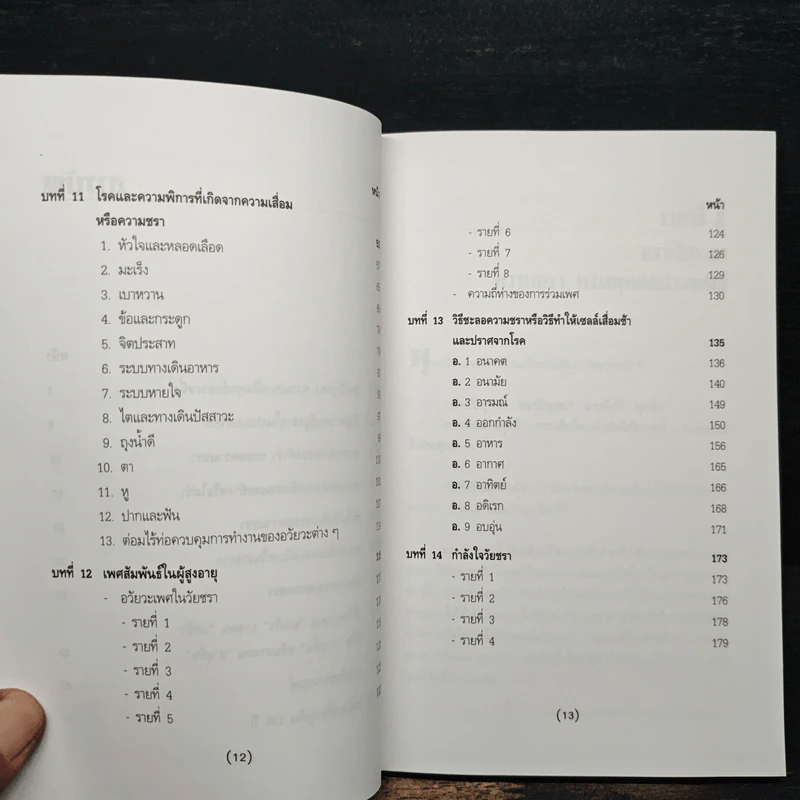 หน้า
บทที่ 11 โรคและความพิการที่เกิดจากความเสื่อม
หรือความชรา
1. หัวใจและหลอดเลือด
2. มะเร็ง
3. เบาหวาน
4. ข้อและกระดูก
5. จิตประสาท
6. ระบบทางเดินอาหาร
7. ระบบหายใจ
8. ไตและทางเดินปัสสาวะ
9. ถุงน้ำดี
10. ตา
11. หู
12. ปากและฟัน
13. ต่อมไร้ท่อควบคุมการทำงานของอวัยวะต่าง ๆ
บทที่ 12 เพศสัมพันธ์ในผู้สูงอายุ
- อวัยวะเพศในวัยชรา
- รายที่ 1
- รายที่ 2
- รายที่ 3
- รายที่ 4
- รายที่ 5
(12)
หน้า
- รายที่ 6 124
- รายที่ 7 126
- รายที่ 8 129
- ความถี่ห่างของการร่วมเพศ 130
บทที่ 13 วิธีชะลอความชราหรือวิธีทำให้เซลล์เสื่อมช้า
และปราศจากโรค 135
อ. 1 อนาคต 136
อ. 2 อนามัย 140
อ. 3 อารมณ์ 149
อ. 4 ออกกำลัง 150
อ. 5 อาหาร 156
อ. 6 อากาศ 165
อ. 7 อาทิตย์ 166
อ. 8 อดิเรก 168
อ. 9 อบอุ่น 171
บทที่ 14 กำลังใจวัยชรา 173
- รายที่ 1 173
- รายที่ 2 176
- รายที่ 3 178
- รายที่ 4 179
(13)